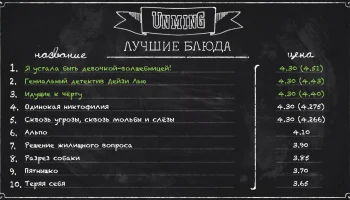 UNMING
ЛУЧШИЕ БЛЮДА
название цена
1. Я устала быть девочкой-волшебницей! 4.30 (4.51)
2. Гениальный детектив Дейзи Лью 4.30 (4.43)
3. Идущие к чёрту 4.30 (4.40)
4. Одинокая никтофилия 4.30 (4.275)
5. Сквозь угрозы, сквозь мольбы и слёзы 4.30 (4.266)
6. Альпо 4.10
7. Решение жилищного вопроса 3.90
8. Разрез собаки 3.85
9. Пятнышко 3.70
10. Теряя себя 3.65